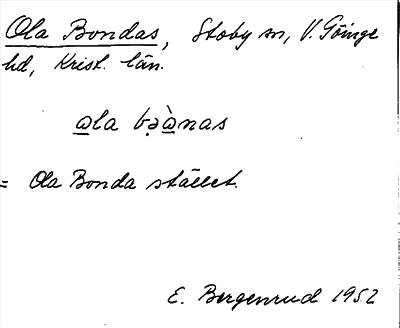 Ola Bondas, Stoby sn, V. Göinge
hd, Krist. län.
ωla bə̣ὼnas
= Ola Bonda stället.
E. Bergenrud 1952